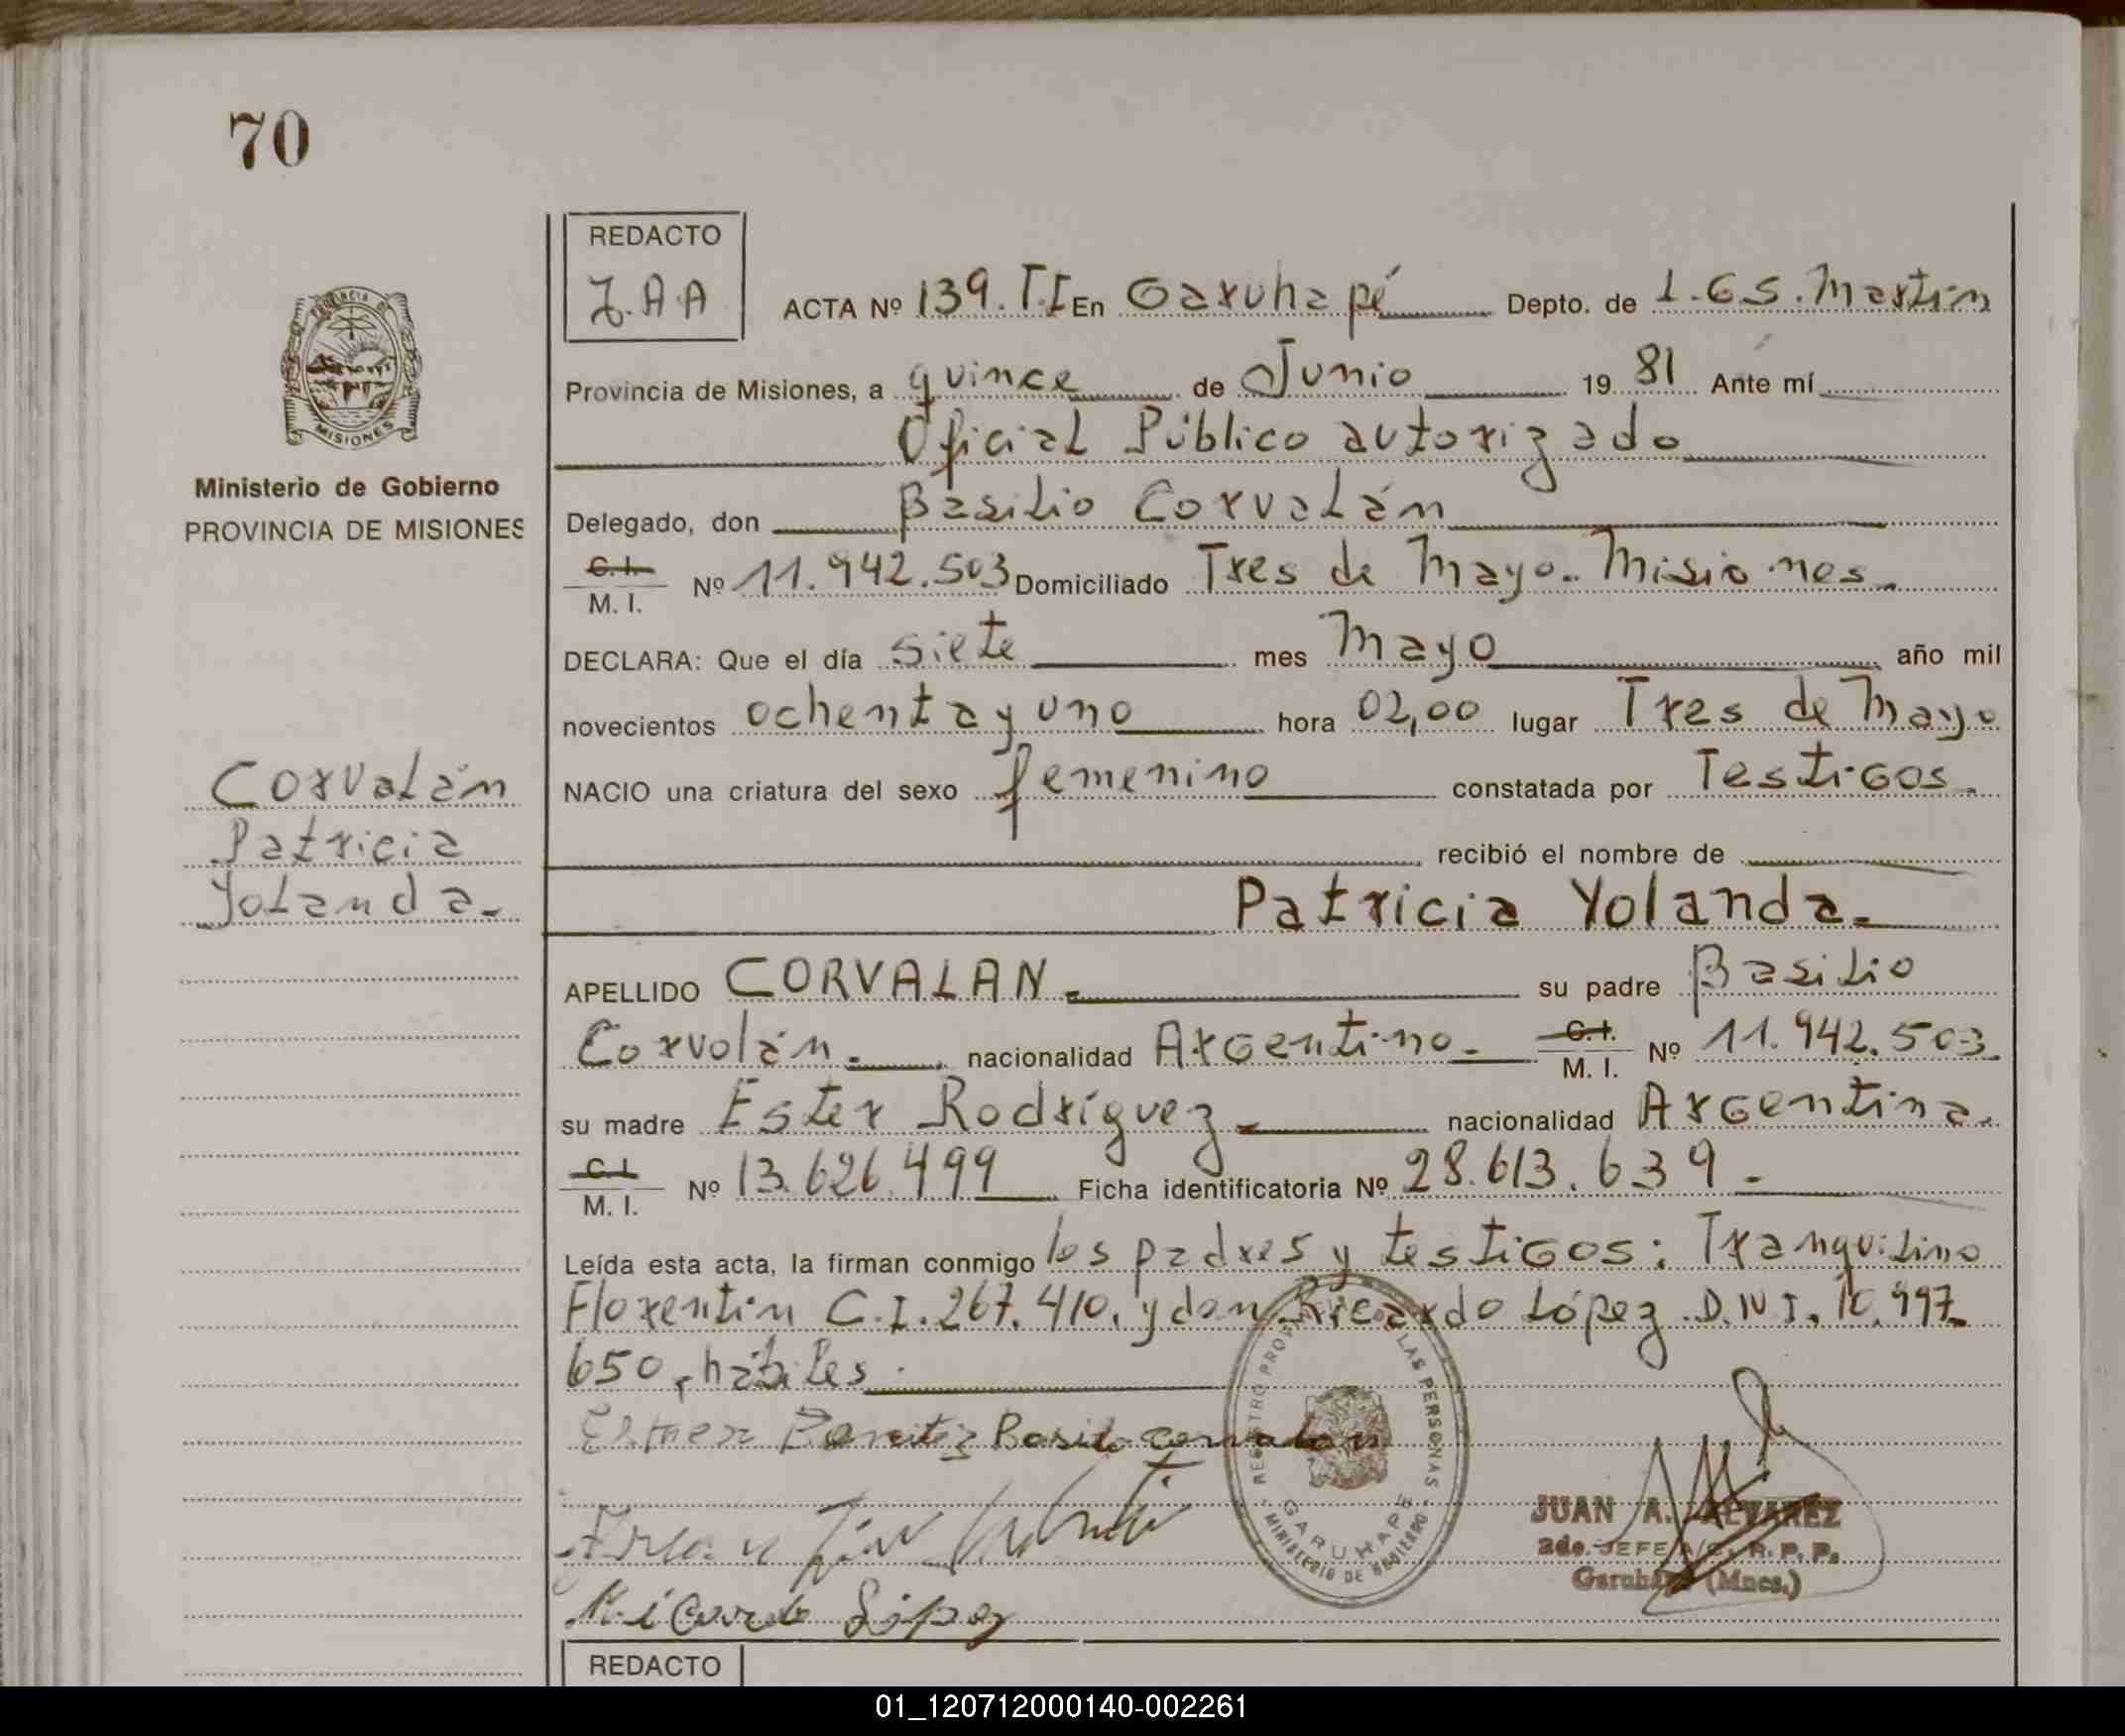 70
REDACTO
J.A.A
ACTA Nº 139.T.I En Garuhapé Depto. de L.G.S.Martín
Provincia de Misiones, a quince de Junio 19 81 Ante mí
Oficial Público autorizado
MISIONES
Ministerio de Gobierno
PROVINCIA DE MISIONES
Delegado, don Basilio Corvalán
C.I.
M. I. Nº 11.942.503 Domiciliado Tres de Mayo.. Misiones.
DECLARA: Que el día siete mes Mayo año mil
novecientos ochenta y uno hora 02,00 lugar Tres de Mayo
Corvalán
Patricia
Yolanda.
NACIO una criatura del sexo femenino constatada por Testigos.
recibió el nombre de
Patricia Yolanda.
APELLIDO CORVALAN. su padre Basilio
Corvolán. nacionalidad Argentino. C.I.
M. I. Nº 11.942.503
su madre Ester Rodríguez nacionalidad Argentina.
C.I.
M. I. Nº 13.626.499 Ficha identificatoria Nº 28.613.639.
Leída esta acta, la firman conmigo los padres y testigos: Tranquilino
Florentín C.I.267.410, y don Ricardo López D.N.I. 10.997.
650, hábiles.
Benitez Basilo corvalan
Ricardo López
LAS PERSONAS
GARUHAPE
MINISTERIO DE GOBIERNO
JUAN A. ALVAREZ
2do. JEFE A/C. R. P. P.
Garuhapé (Mnes.)
REDACTO
01_120712000140-002261